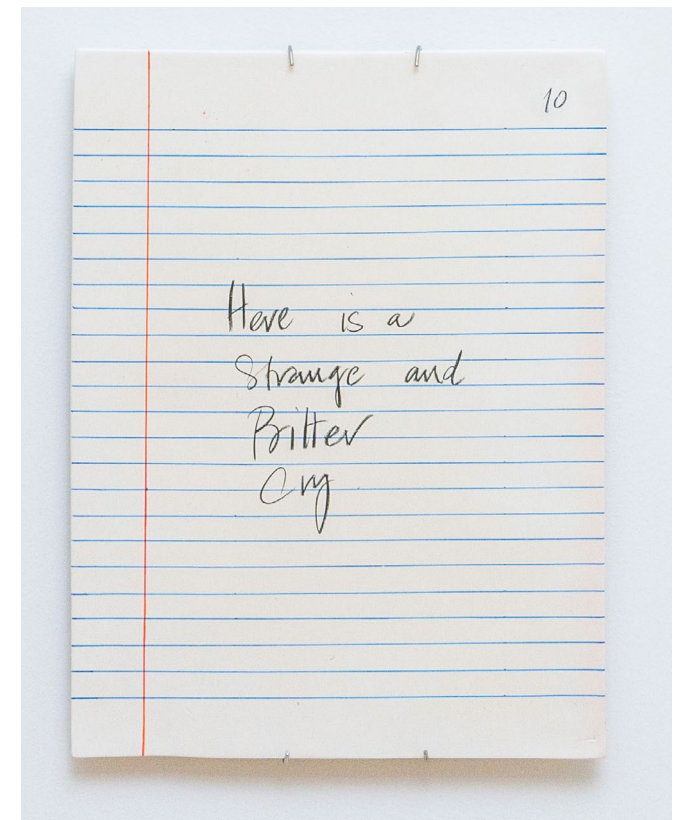 10
Here is a
Strange and
Bitter
Cry